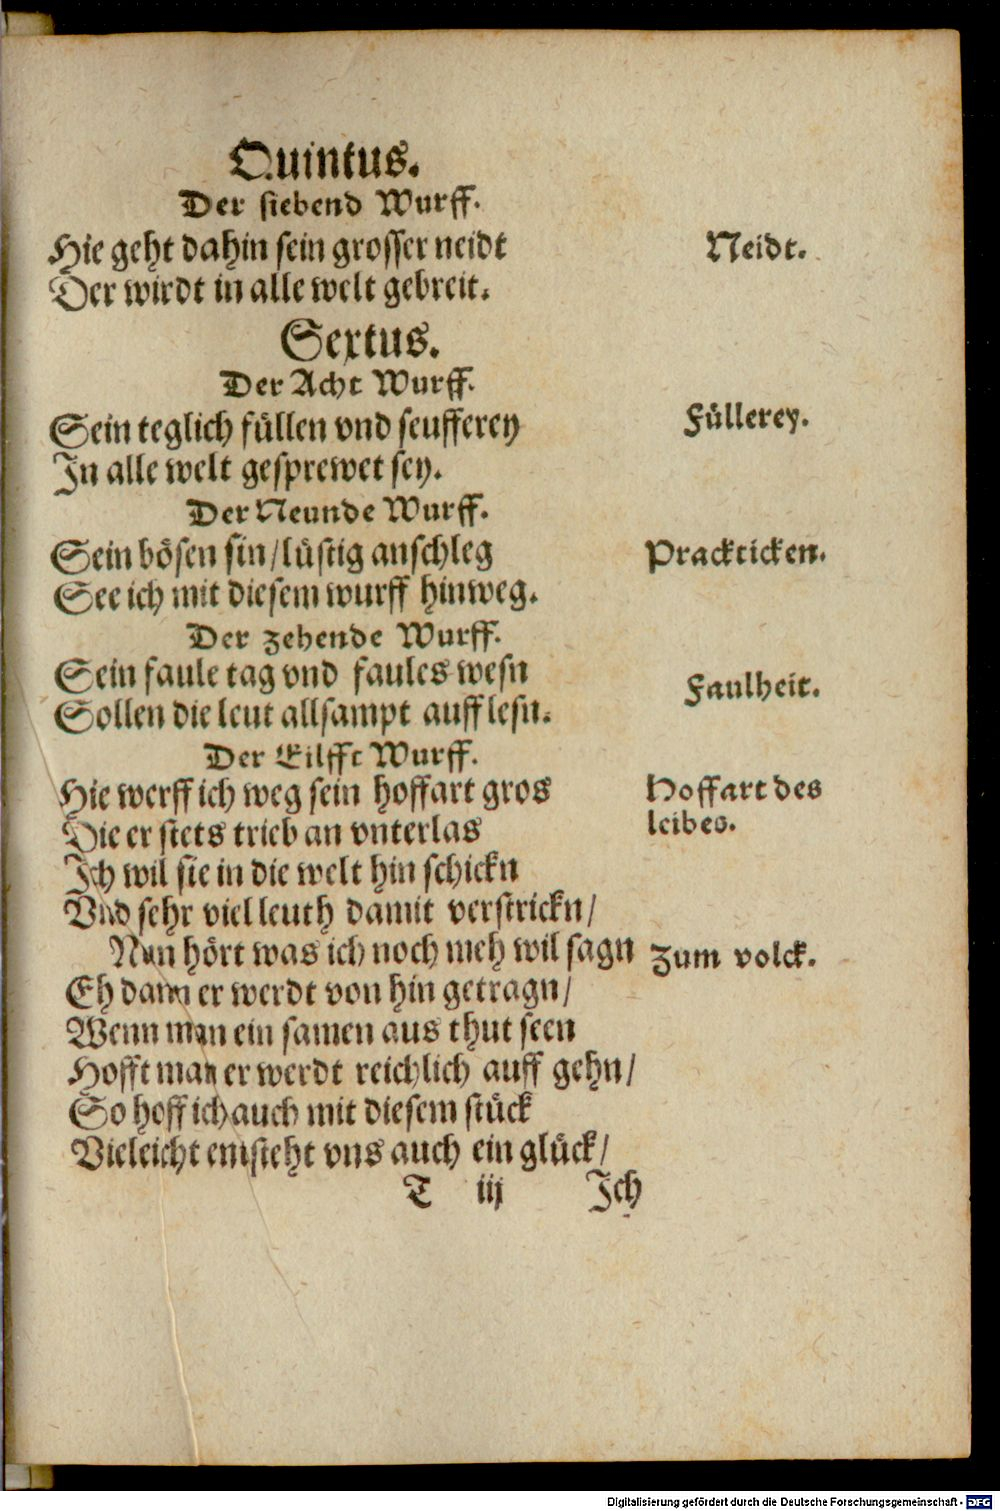 Quintus.
Der siebend Wurff.
Hie geht dahin sein grosser neidt
Neidt.
Der wirdt in alle welt gebreit.
Sextus.
Der Acht Wurff.
Sein teglich füllen vnd seufferey
Füllerey.
In alle welt gesprewet sey.
Der Neunde Wurff.
Sein bösen sin/lüstig anschleg
Prackticken.
See ich mit diesem wurff hinweg.
Der zehende Wurff.
Sein faule tag vnd faules wesn
Faulheit.
Sollen die leut allsampt auff lesn.
Der Eilfft Wurff.
Hie werff ich weg sein hoffart gros
Hoffart des
Die er stets trieb an vnterlas
leibes.
Ich wil sie in die welt hin schickn
Vnd sehr viel leuth damit verstrickn/
Nun hört was ich noch meh wil sagn
Zum volck.
Eh dann er werdt von hin getragn/
Wenn man ein samen aus thut seen
Hofft man er werdt reichlich auff gehn/
So hoff ich auch mit diesem stück
Vieleicht entsteht vns auch ein glück/
T iij Ich
Digitalisierung gefördert durch die Deutsche Forschungsgemeinschaft - DFG